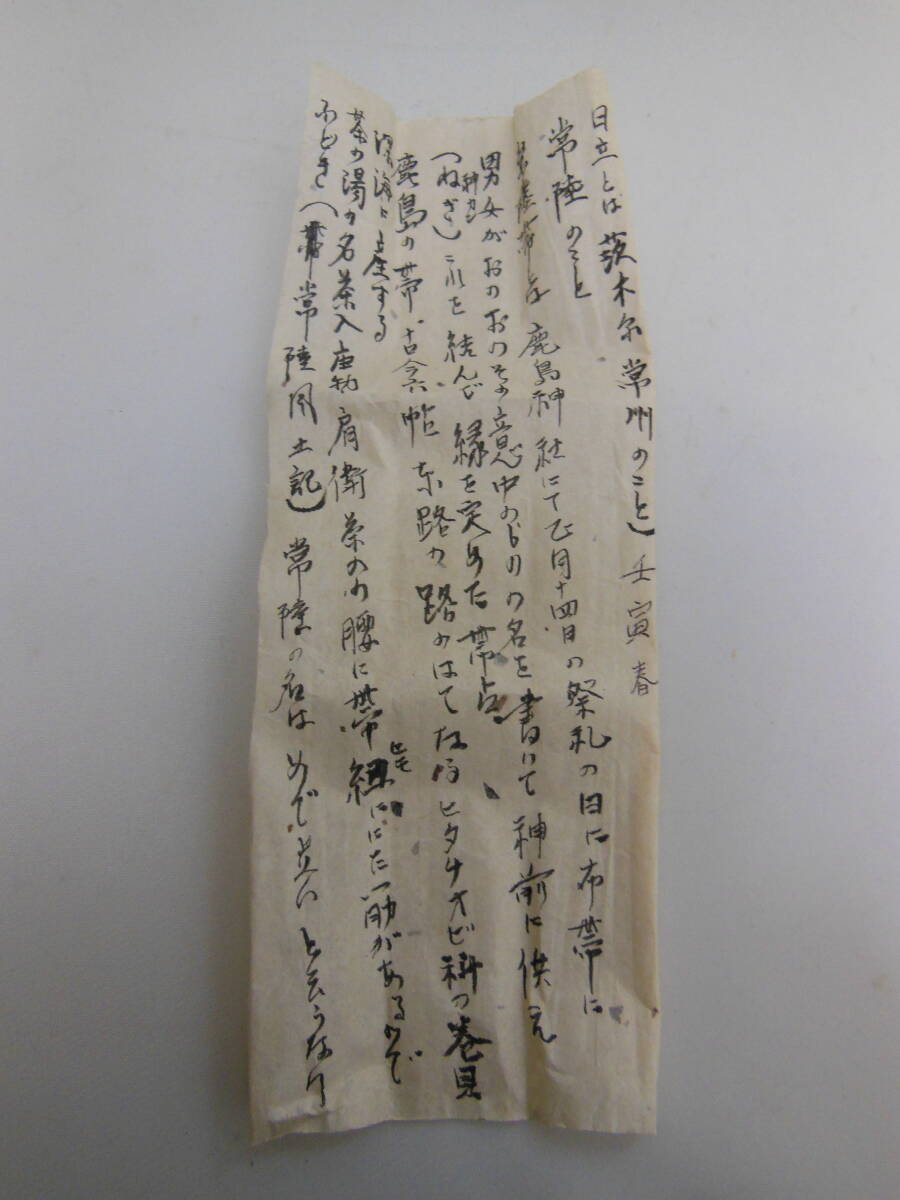 日立とは 茨木県 常州のこと) 壬寅春
常陸のこと
常陸帯は 鹿島神社にて正月十四日の祭礼の日に布帯に
男女がおのおのその意中のものの名を書いて 神前に供え
(ねぎ 神カン) これを結んで 縁を定めた帯占
鹿島の帯 古今六帖 東路の路のはてなる ヒタチオビ科の巻貝
深海に産する
茶の湯の名茶入 唐物肩衝 茶入の腰に帯紐ヒモににた一筋があるので
常陸風土記) 常陸の名は めで というなり